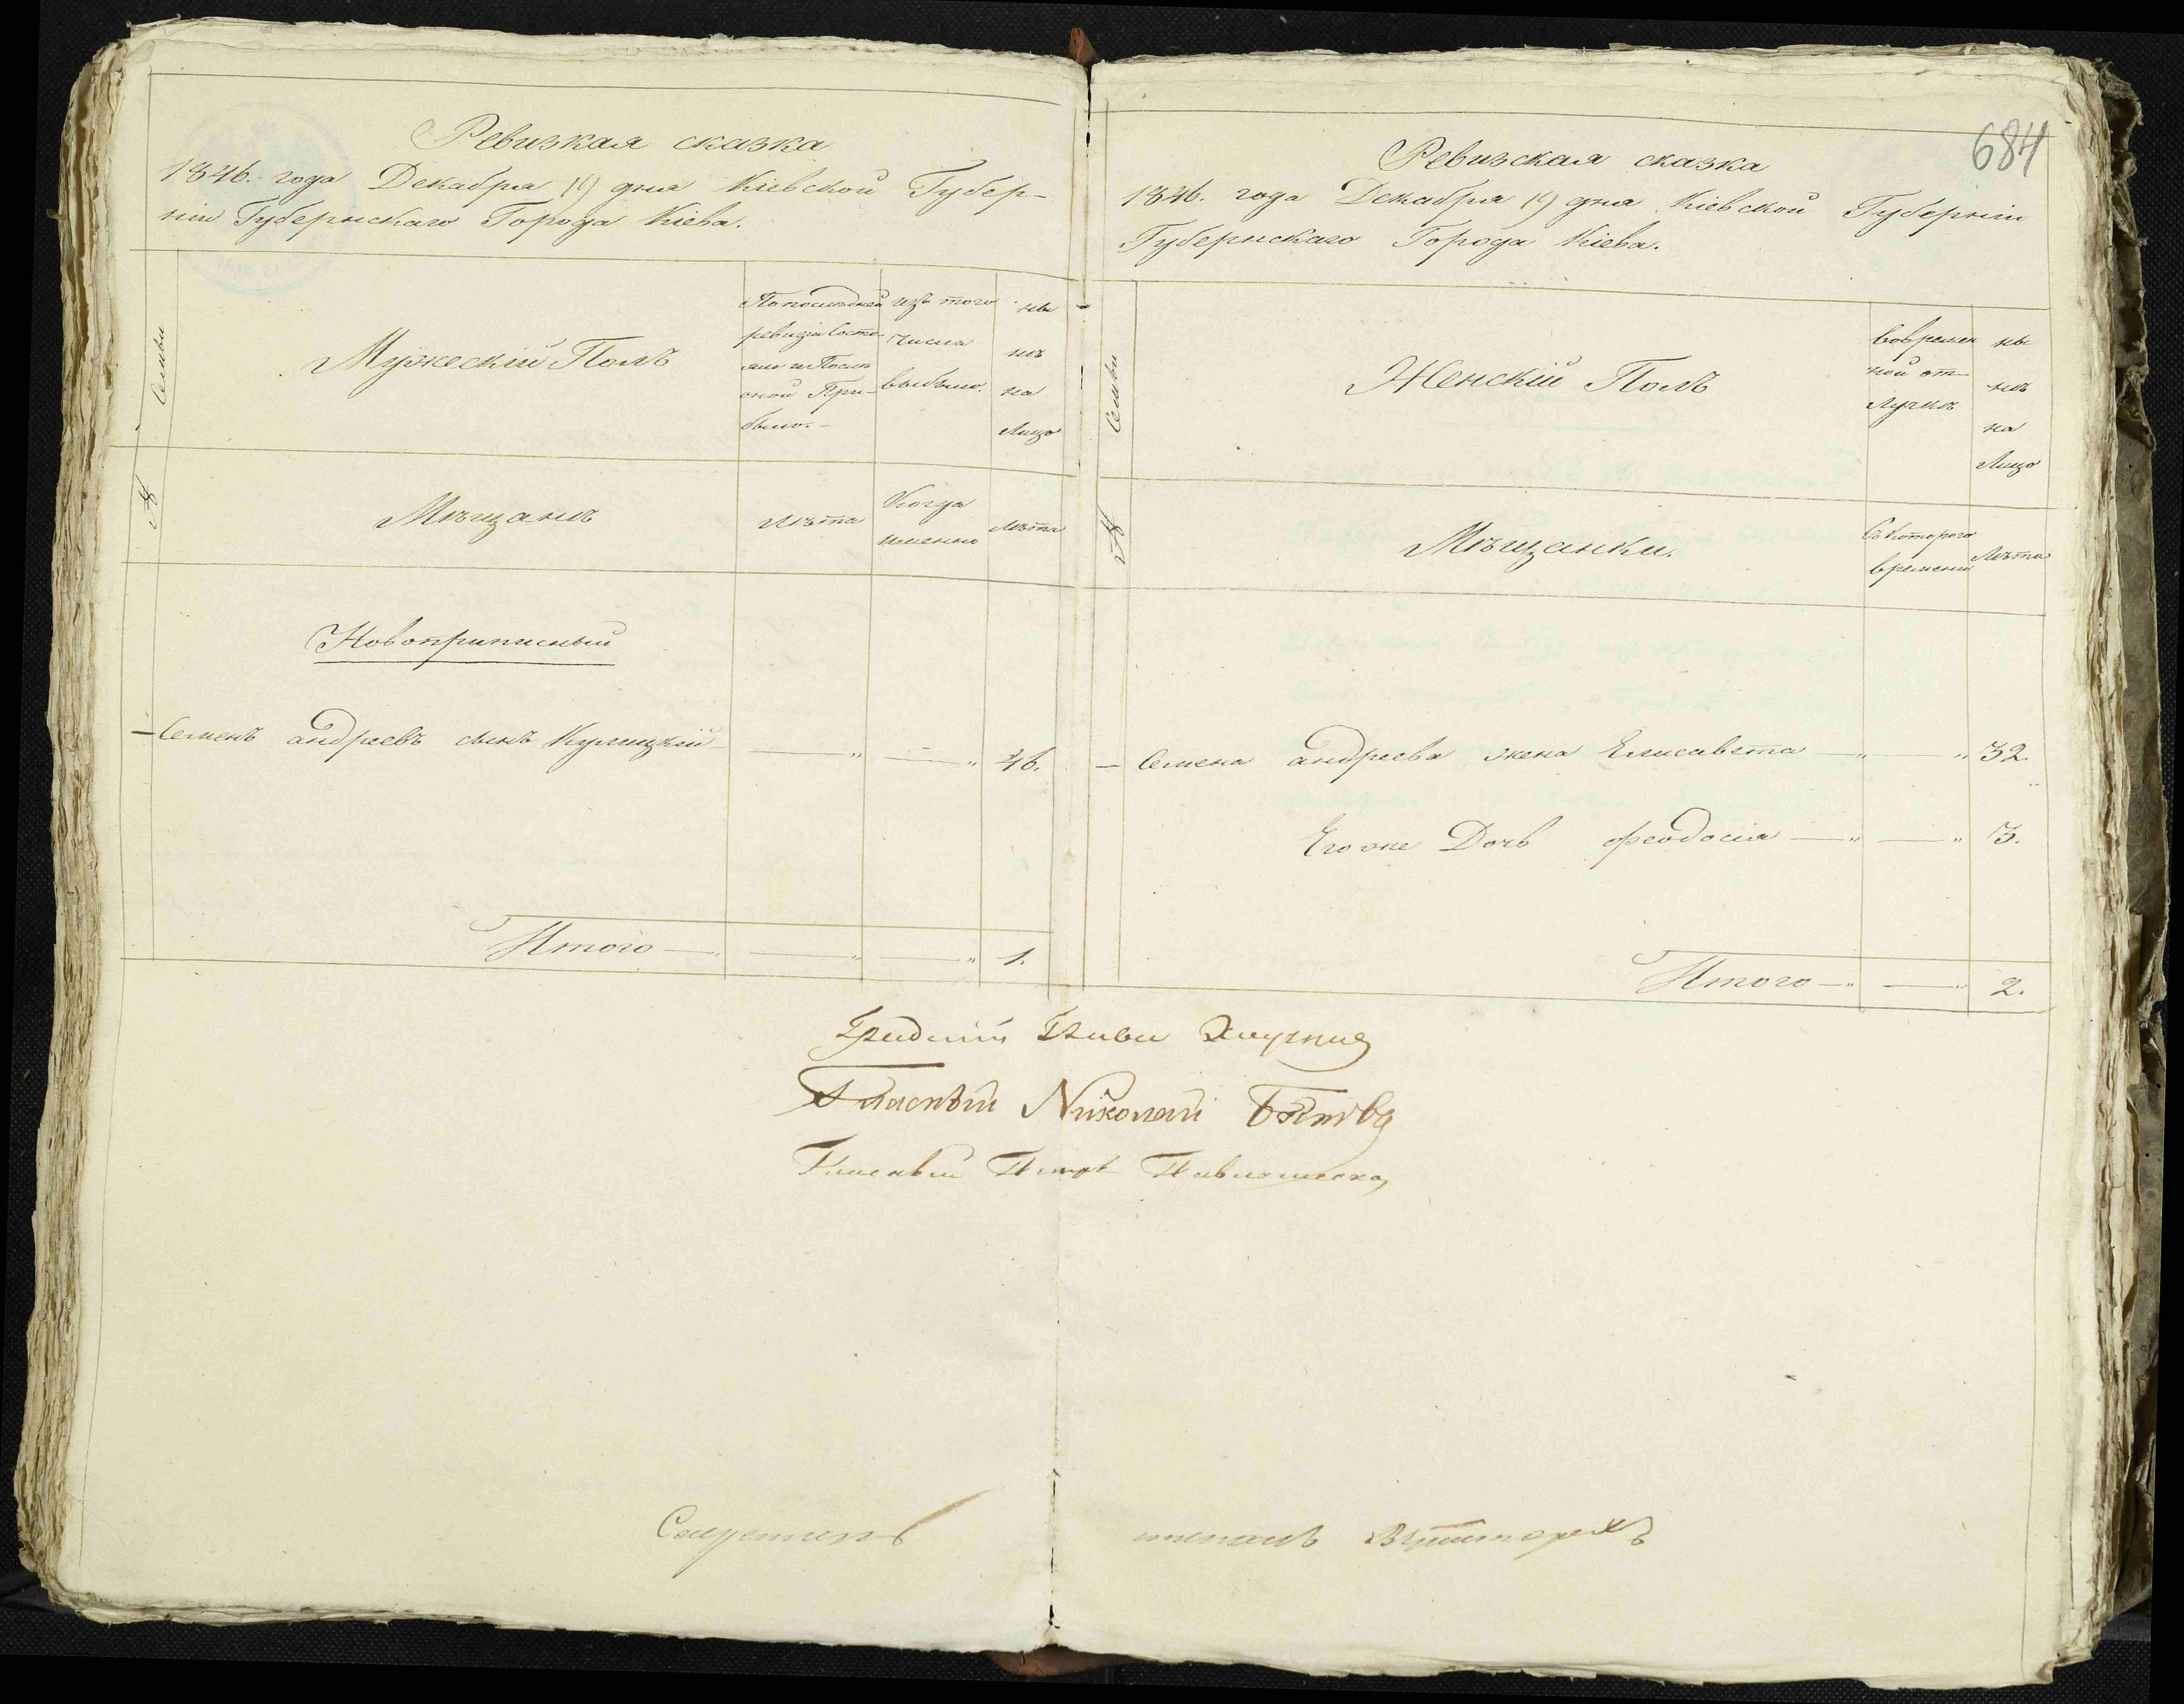 Ревизкая сказка
1846. года Декабря 19 дня Кіевской Губер-
ніи Губернскаго Города Кіева.
Семьи
Мужескій Полъ
По последней
ревизіи Состо
яло и После
оной При-
было.-
изъ того
числа
выбыло.
ны
нѣ
на
Лицо
№
Мѣщанъ
Лѣта
Когда
именно
Лѣта
Новоприписный
Семенъ андреевъ сынъ Кулицкій 46.
Итого 1.
684
Ревизская сказка
1846. года Декабря 19 дня Кіевской Губерніи
Губернскаго Города Кіева.
Семьи
Женскій Полъ
Вовремен
ной от
Лучкѣ
ны
нѣ
на
Лицо
№
Мѣщанки.
Съ Котораго
времени
Лѣта
Семена андреева жена Елисавета 32.
Его же Дочь феодосія 3.
Итого 2.
Гласный Николай
Гласный